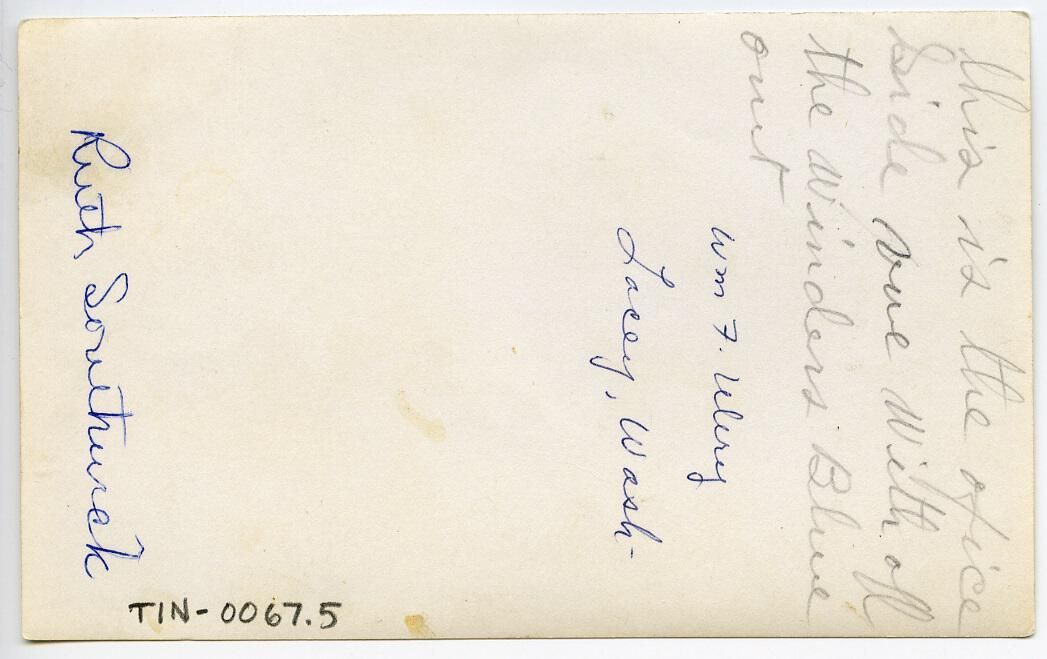 this is the ofice
Side vue With oll
the Winders Blue
out
Wm F. Ulery
Lacey, Wash-
Ruth Southwick
TIN-0067.5